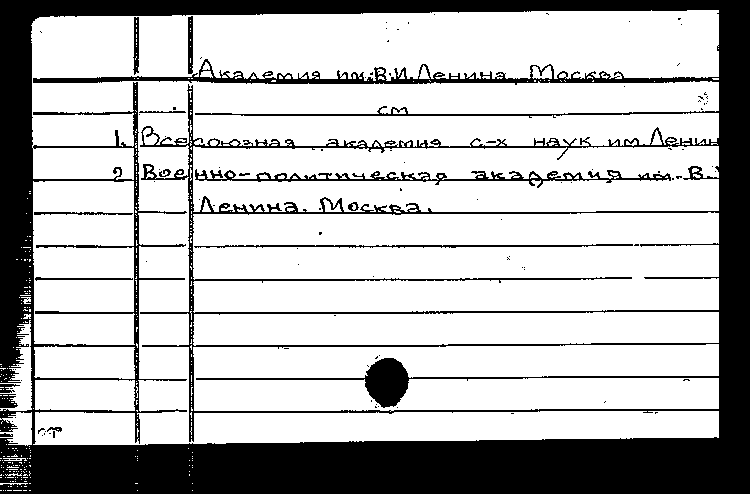 Академия им. В.И. Ленина. Москва
см
1. Всесоюзная академия с-х наук им. Ленин
2 Военно-политическая академия им. В.
Ленина. Москва.